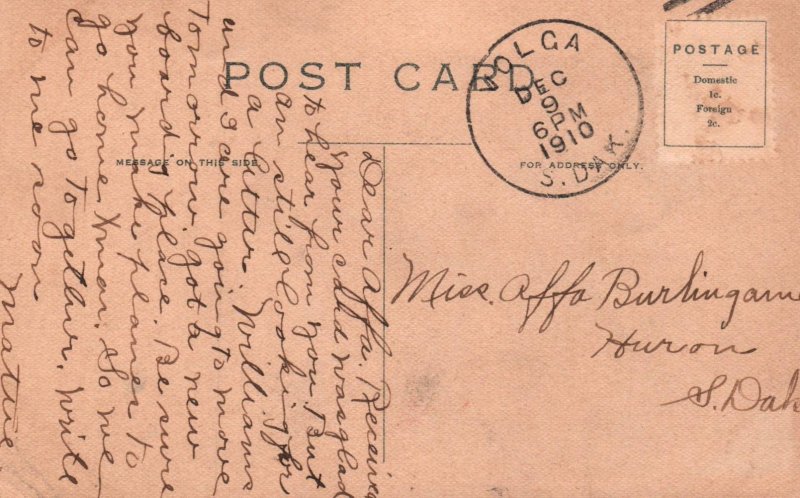 POST CARD
VOLGA
DEC
9
6 PM
1910
S. DAK.
POSTAGE
Domestic
1c.
Foreign
2c.
MESSAGE ON THIS SIDE
FOR ADDRESS ONLY.
Dear Affa. Received
your card was glad
to hear from you. But
am still looking for
a letter. Williams
and I are going to move
Tomorrow. got a new
boarding place. Be sure
you make planes to
go home Xmas. So we
can go together. Write
to me soon
Miss. Affa Burlingame
Huron
S. Dak